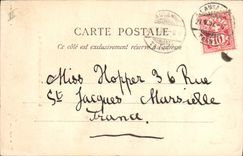 CARTE POSTALE
Ce côté est exclusivement réservé à l'adresse
Miss Hopper 36 Rue
St Jacques Marsielle
France.